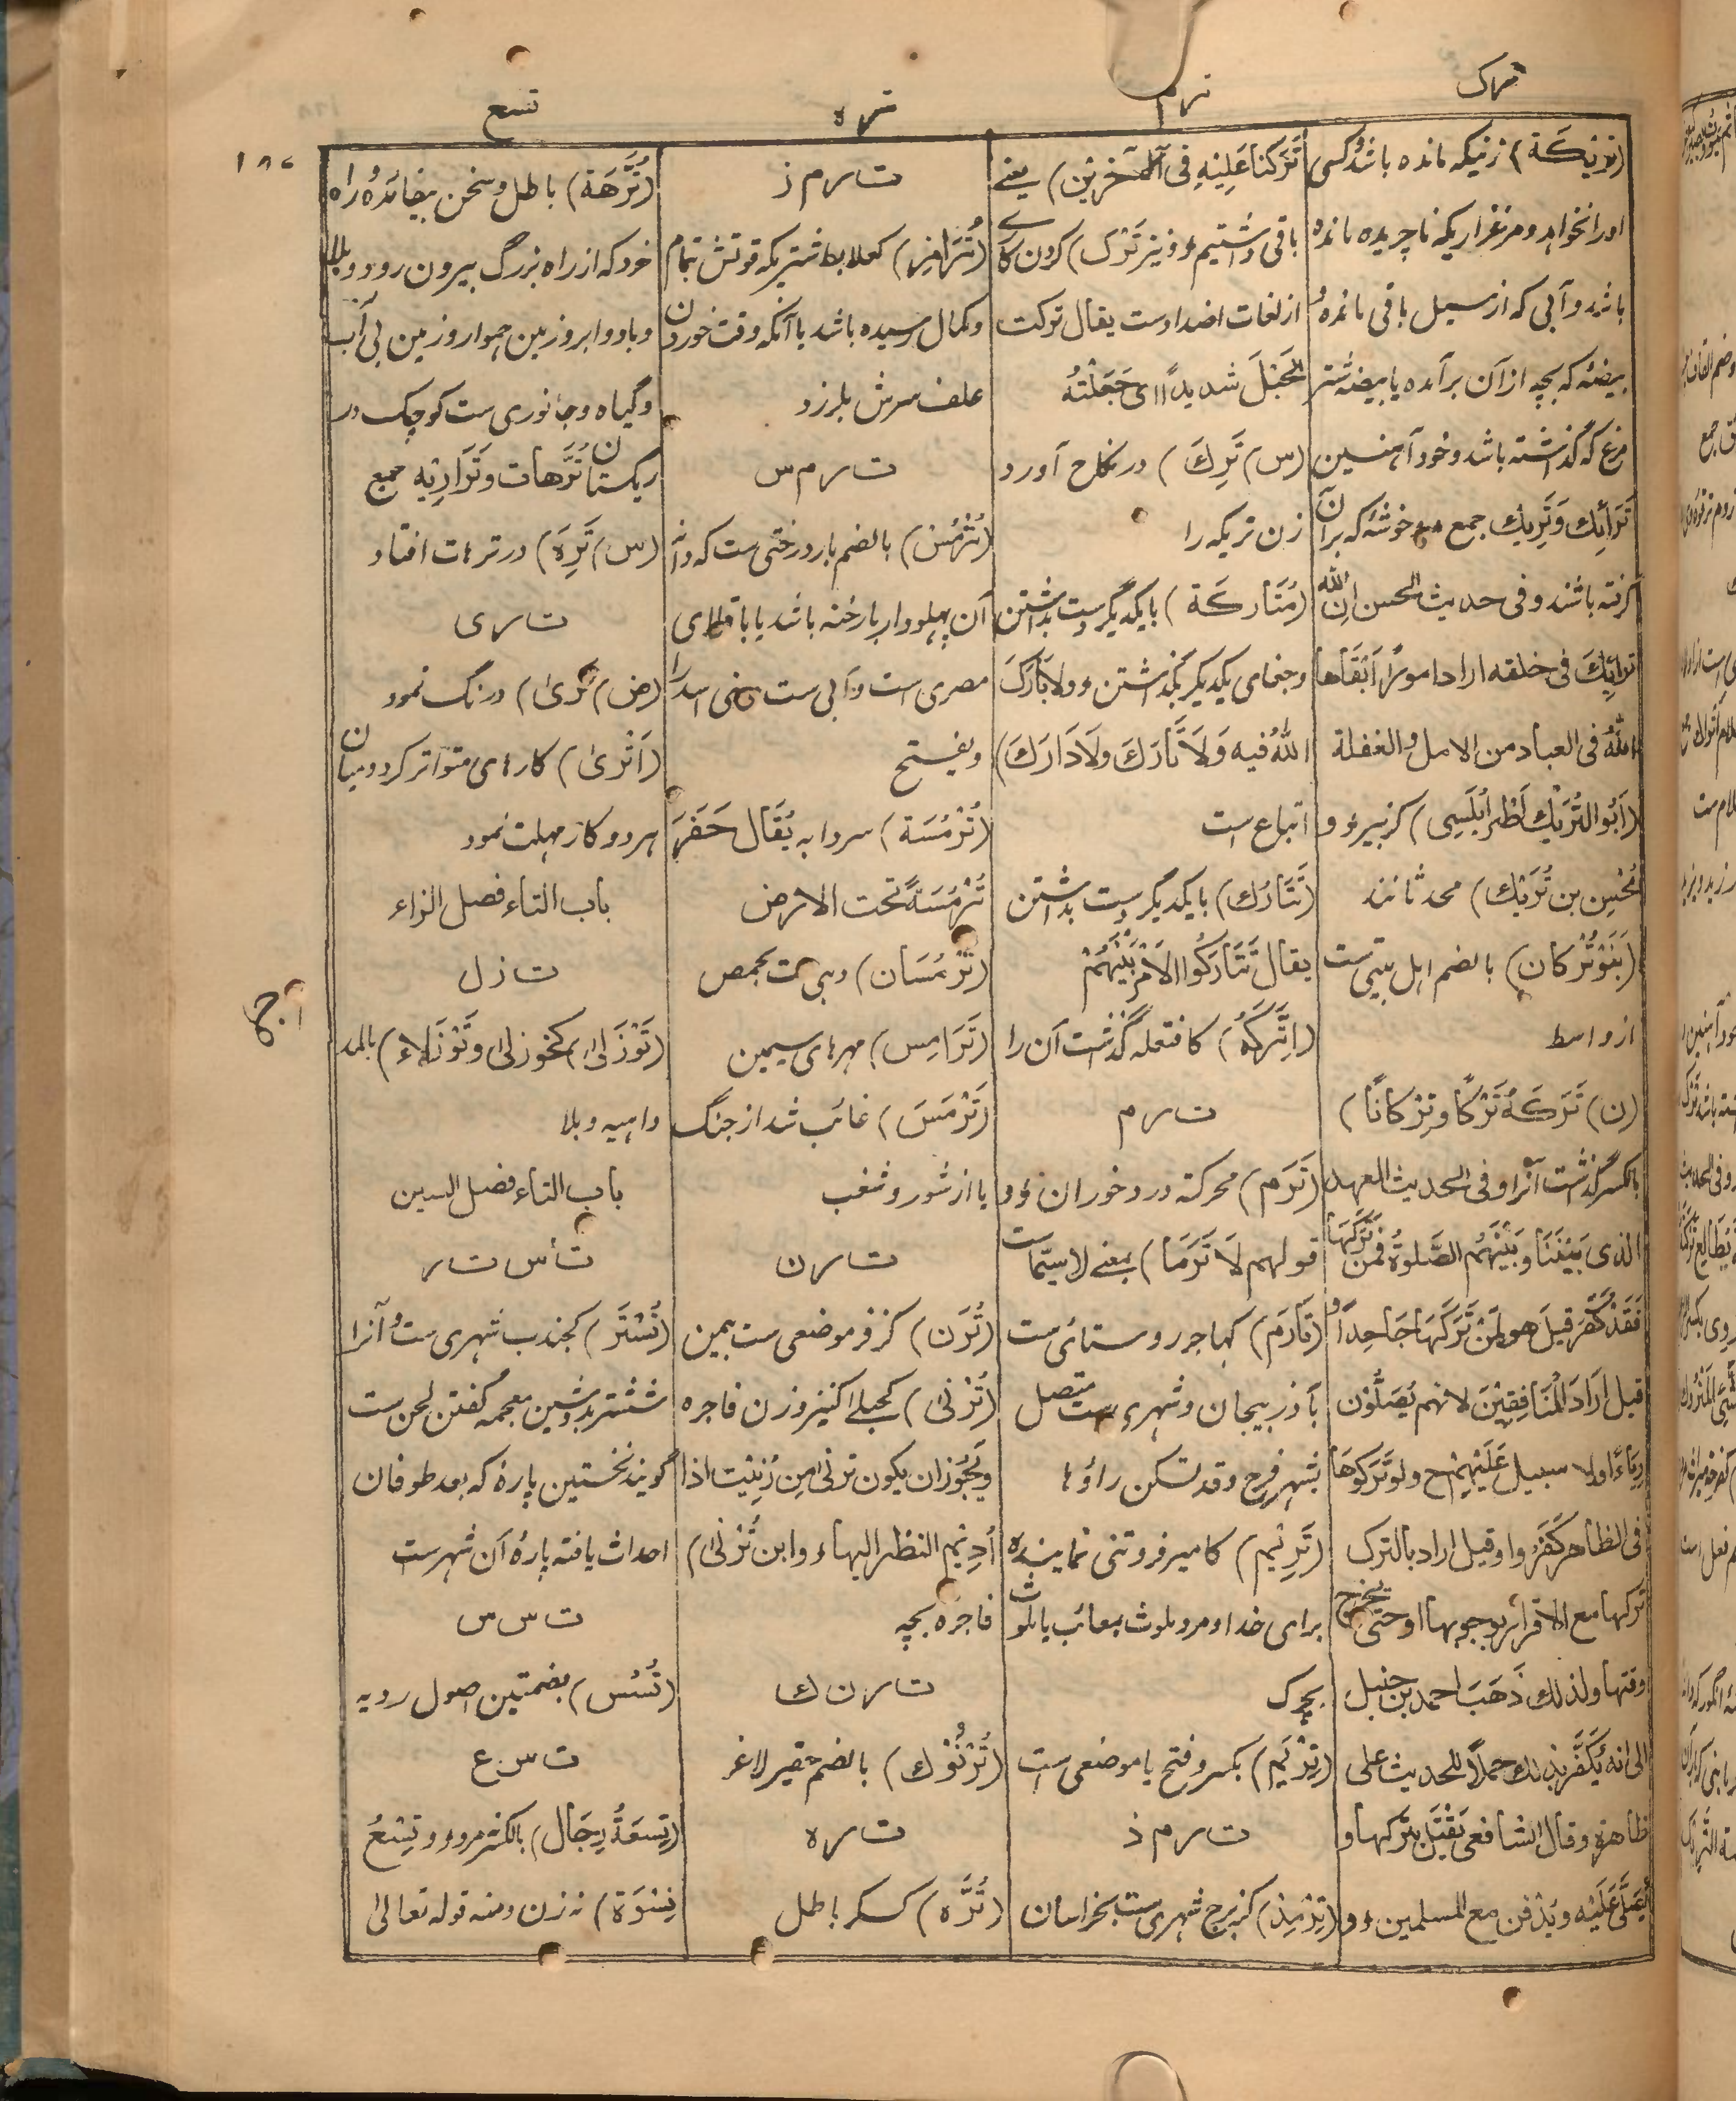 ترک
ترم
تره
تسع
۱۸۷
(تَرِيْكَة) زنیکه مانده باشد و کسی
اورا نخواهد و مرغزاریکه ناچریده مانده
باشد و آبی که از سیل باقی مانده و
بیضهٔ که بچه از آن برآمده یا بیضهٔ شتر
مرغ که گذاشته باشد و خود آهنین
تَرَائِك وَتَرِيك جمع و خوشهٔ که بر آن
گرفته باشند و فی حدیث الحسن ان لله
ترائِكَ فی خلقه اراد امورًا اَبْقَاها
اللهُ فی العباد من الامل والغفلة
(اَبُو التُّرَيْك اَطْرَابُلَسِی) کزبیر و
مُحْسِن بن تُرَيْك) محدثانند
(بَنَوْتُرْكان) بالضم اهل بیتی ست
از واسط
(ن) تَرَكَهُ تَرْكًا وَتِرْكَانًا)
بالکسر گذاشت آنرا و فی الحدیث العهد
الذی بَيْنَنَا وَبَيْنَهُم الصَّلوةُ فَمَن تَرَكَهَا
فَقَدْ كَفَرَ قیلَ هو لمَنْ تَرَكَهَا جَاحِدًا و
قیل اَرَادَ الْمُنَافِقِيْنَ لانهم يُصَلُّوْن
رِیَاءً ولا سبیل عَلَيْهِمْ ح ولو تَرَكُوهَا
فی الظاهر كَفَرُوا وقیل اراد بالترک
ترکها مع الاقرار بوجوبها او حتی یخرج
وقتها ولذلك ذَهَبَ احمد بن حنبل
الی انه يُكَفَّر بذلك حملًا للحدیث علی
ظاهره وقال الشافعی يُقْتَل بترکها و
يُصَلَّى عَلَيْه ويُدْفن مع المسلمین و
تَرَكْنَا عَلَيْهِ فِی الْآخَرِيْنَ) یعنے
باقی داشتیم و نیز تَرْک) کردن کارے
از لغات اضداد ست یقال ترکت
الْحَبْلَ شدیدًا ای جَعَلْتُهُ
(س) تَرِكَ) در نکاح آورد
زن تریکه را
(مُتَارَكَة) بایکدیگر دست بداشتن
و جفای یکدیگر بگذاشتن و لابَارَكَ
اللهُ فیه وَلَا تَارَكَ ولَا دَارَكَ)
اتباع است
(تَتَارُك) بایکدیگر دست بداشتن
یقال تَتَارَكُوا الاَمْرَ بَيْنَهُمْ
(اِتَّرَكَهُ) کافتعله گذاشت آن را
ت ر م
(تَرَم) محرکة درد خوران و
قولهم لَا تَرَمَا) بمعنے لاسیّما ست
(تَارَم) کهاجر روستائی ست
بآذربیجان و شهری ست متصل
بشهر فرج وقد تسکن راؤها
(تَرِيْم) کامیر فروتنی نماینده
برای خدا و مرد ملوث بمعائب یا ملوث
بچرک
(تِرْيَم) بکسر و فتح یا موضعی است
ت ر م ذ
(تِرْمِذ) کزبرج شهری ست بخراسان
ت ر م ز
(تُرَامِز) کعلابط شتریکه قوتش تمام
و کمال رسیده باشد یا آنکه وقت خوردن
علف سرش بلرزد
ت ر م س
(تُرْمُس) بالضم بار درختی ست که دانه
آن پهلودار بارخنه باشد یا باقلای
مصری است و آبی ست بنی اسد را
ویفتح
(تُرْمُسَة) سردابه يُقَال حَفَرَ
تُرْمُسَةً تحت الارض
(تُرْمُسَان) دهی ست بحمص
(تَرَامِس) مهرهای سیمین
(تَرْمَسَ) غائب شد از جنگ
یا از شور و شغب
ت ر ن
(تُرَن) کزفر موضعی ست بیمن
(تُرْنٰی) کحبلی کنیز و زن فاجره
ويَجُوْز ان یکون ترنٰی مِن رُنِيَتْ اذا
اُدِيْمَ النظر الیها وابن تُرْنٰی)
فاجره بچه
ت ر ن ك
(تُرْنُوْك) بالضم حقیر لاغر
ت ر ه
(تُرَّه) کسکر باطل
(تُرَّهَة) باطل و سخن بیفائده و راه
خورد که از راه بزرگ بیرون رود و بلا
و باد و ابر و زمین هموار و زمین بی آب
و گیاه و جانوری ست کوچک در
ریگستان تُرَّهات وتَرَارِيْه جمع
(س) تَرِهَ) در ترهات افتاد
ت ر ی
(ض) تَرٰی) درنگ نمود
(اَتْرٰی) کارهای متواتر کرد و میان
هر دو کار مهلت نمود
باب التاء فصل الزاء
ت ز ل
(تَوْزَلٰی) کخوزلٰی وتَوْزَلاء) بالمد
داهیه و بلا
باب التاء فصل السین
ت س ت ر
(تُسْتَر) کجندب شهری ست و آنرا
شُشْتر بدو شین معجمه گفتن لحن ست
گویند نخستین پارهٔ که بعد طوفان
احداث یافته پارهٔ آن شهر ست
ت س س
(تُسُس) بضمتین اصول رویه
ت س ع
(تِسعَةُ رِجَال) بالکسر نه مرد و تِسْعُ
نِسْوَة) نه زن ومنه قوله تعالی